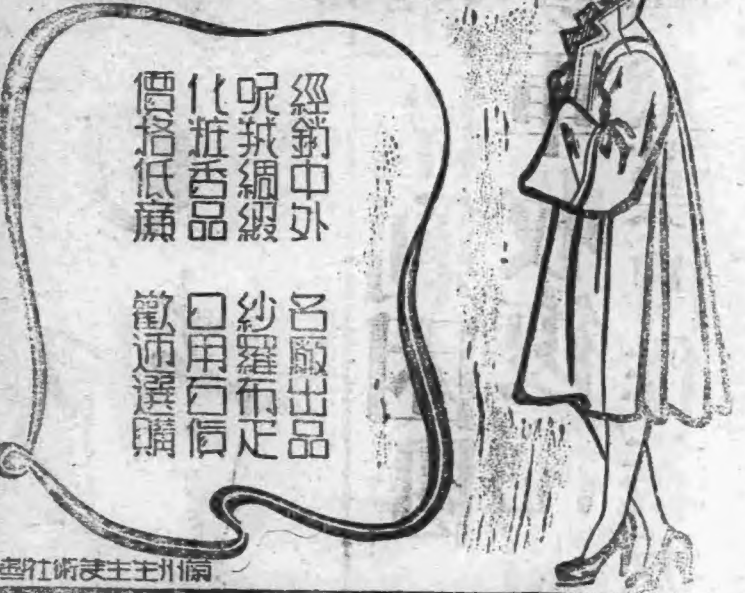 經銷中外 名廠出品
呢羢綢緞 紗羅布疋
化粧香品 日用百貨
價格低廉 歡迎選購
蘭州生生美術社畫